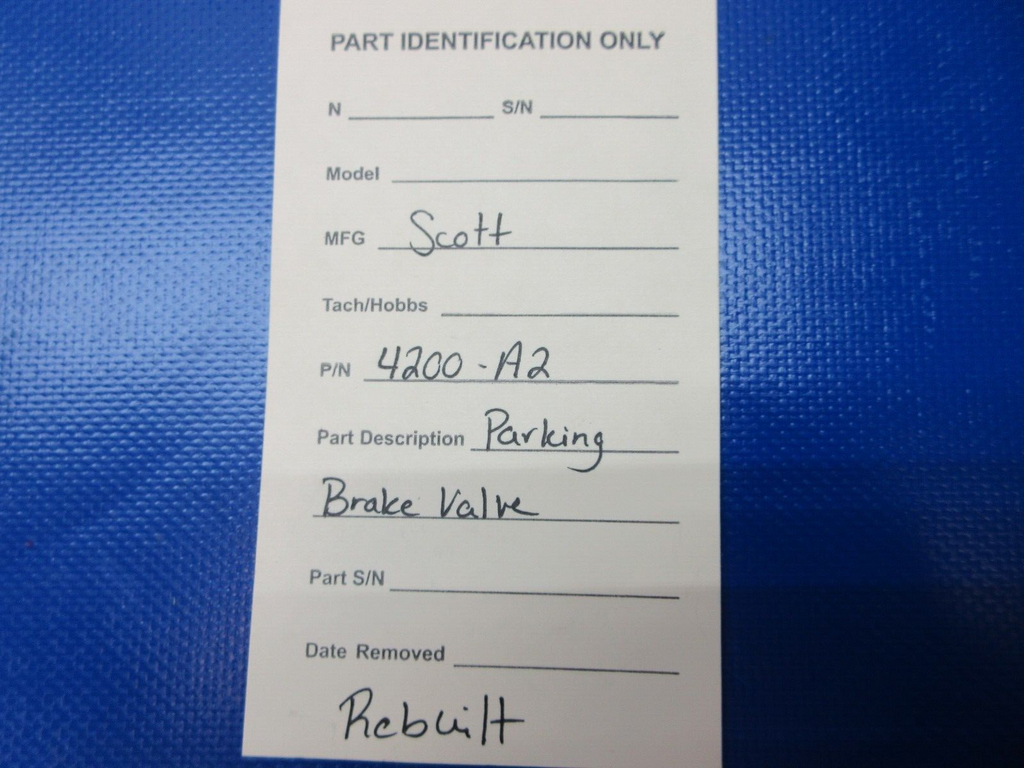 PART IDENTIFICATION ONLY
N S/N
Model
MFG Scott
Tach/Hobbs
P/N 4200-A2
Part Description Parking
Brake Valve
Part S/N
Date Removed
Rebuilt